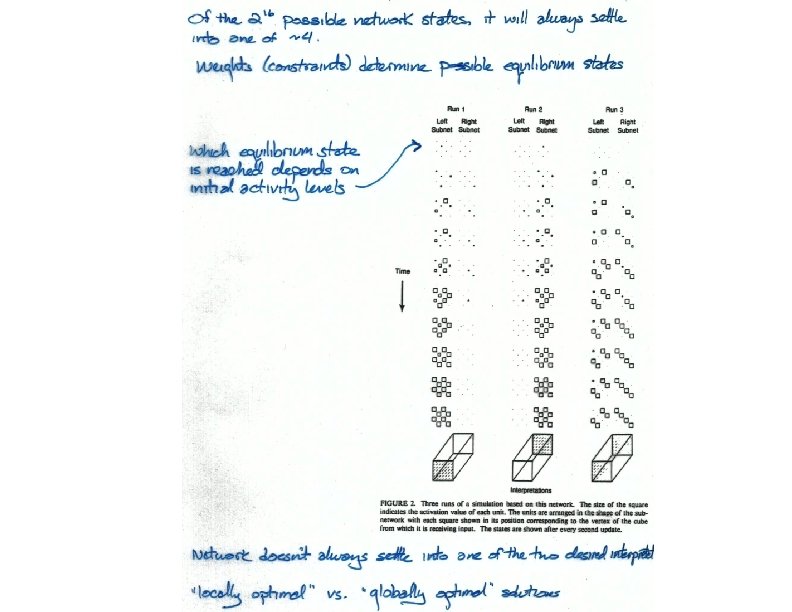 Of the 2^16 possible network states, it will always settle
into one of ~4.
Weights (constraints) determine possible equilibrium states
Run 1 Run 2 Run 3
Left Right Left Right Left Right
Subnet Subnet Subnet Subnet Subnet Subnet
Which equilibrium state
is reached depends on
initial activity levels
Time
Interpretations
FIGURE 2. Three runs of a simulation based on this network. The size of the square
indicates the activation value of each unit. The units are arranged in the shape of the sub-
network with each square shown in its position corresponding to the vertex of the cube
from which it is receiving input. The states are shown after every second update.
Network doesn't always settle into one of the two desired interpret
"locally optimal" vs. "globally optimal" solutions